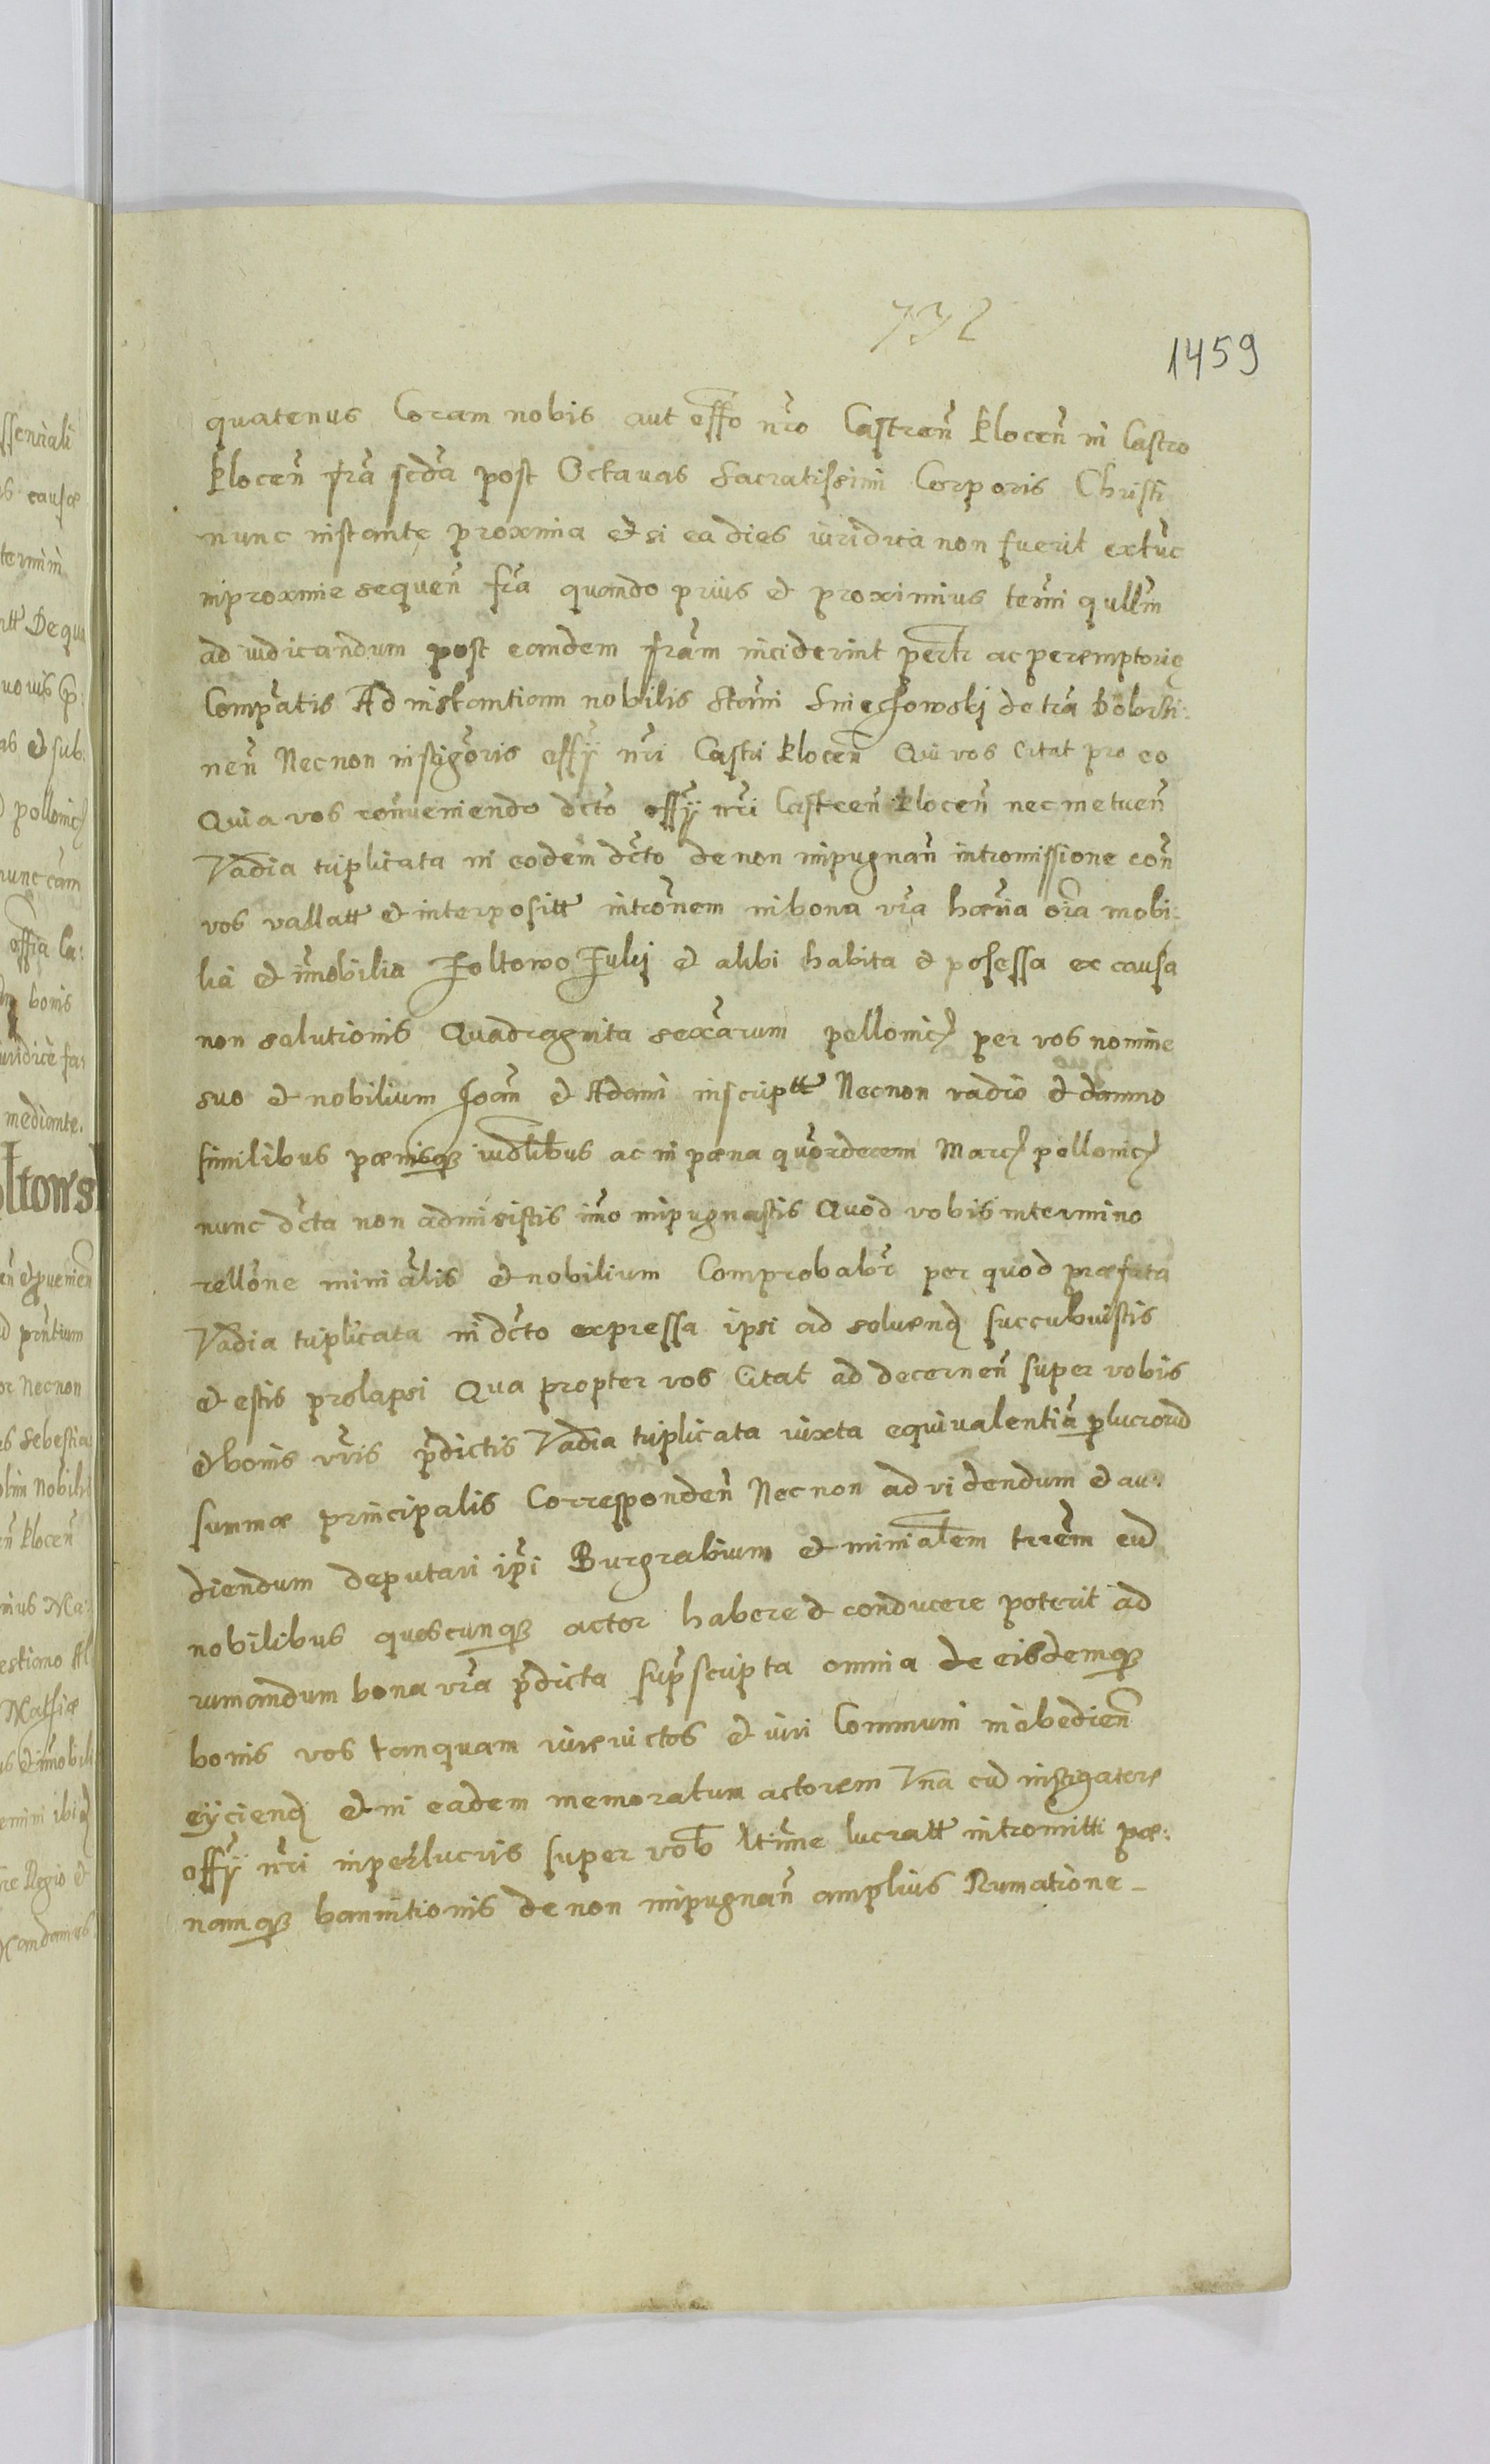 732
1459
quatenus Coram nobis aut offo nro Castren Plocen in Castro
Plocen fra scda post Octauas Sacratissimi Corporis Christi
nunc instante proxima et si ea dies iuridica non fuerit extunc
inproxime sequen fra quando prius et proximius termi qullm
ad iudicandum post eandem fram inciderint peremptorie
Compatis Ad instantiam nobilis Stani de tra Dobrsi:
nen Necnon instigoris offy nri Castri Plocen Qui vos Citat pro eo
Quia vos conveniendo dcto offy nri Castren Plocen nec metuen
Vadia triplicata in eodem dcto de non impugnan intromissione con
vos vallatt et interpositt intronem in bona vra haeria oia mobi:
lia et imobilia Foltowo Fulki et alibi habita et possessa ex causa
non solutionis Quadraginta sexarum pollonic per vos nomine
suo et nobilium Joan et Adami inscriptt Necnon vadio et damno
similibus paenisq iudlibus ac in paena quordecem Marc pollonic
nunc dcta non admisistis imo impugnastis Quod vobis in termino
rellone minialis et nobilium Comprobabr per quod praefata
Vadia triplicata in dcto expressa ipsi ad soluend succubuistis
et estis prolapsi Qua propter vos Citat ad decernen super vobis
et bonis vris pdictis Vadia triplicata iuxta equivalentia plucrorum
summae principalis Corresponden Necnon ad videndum et au:
diendum deputari ipi Burgrabium et minialem trrem cu
nobilibus quoscunq actor habere et conducere poterit ad
rumandum bona vra pdicta supscripta omnia de eisdemq
bonis vos tanquam iurevictos et iuri Communi inobedien
eyciend et in eadem memoratum actorem Vna cu instigatore
offy nri in perlucris super vob ltime lucratt intromitti pae:
namq bannitionis de non impugnan amplius Rumatione_